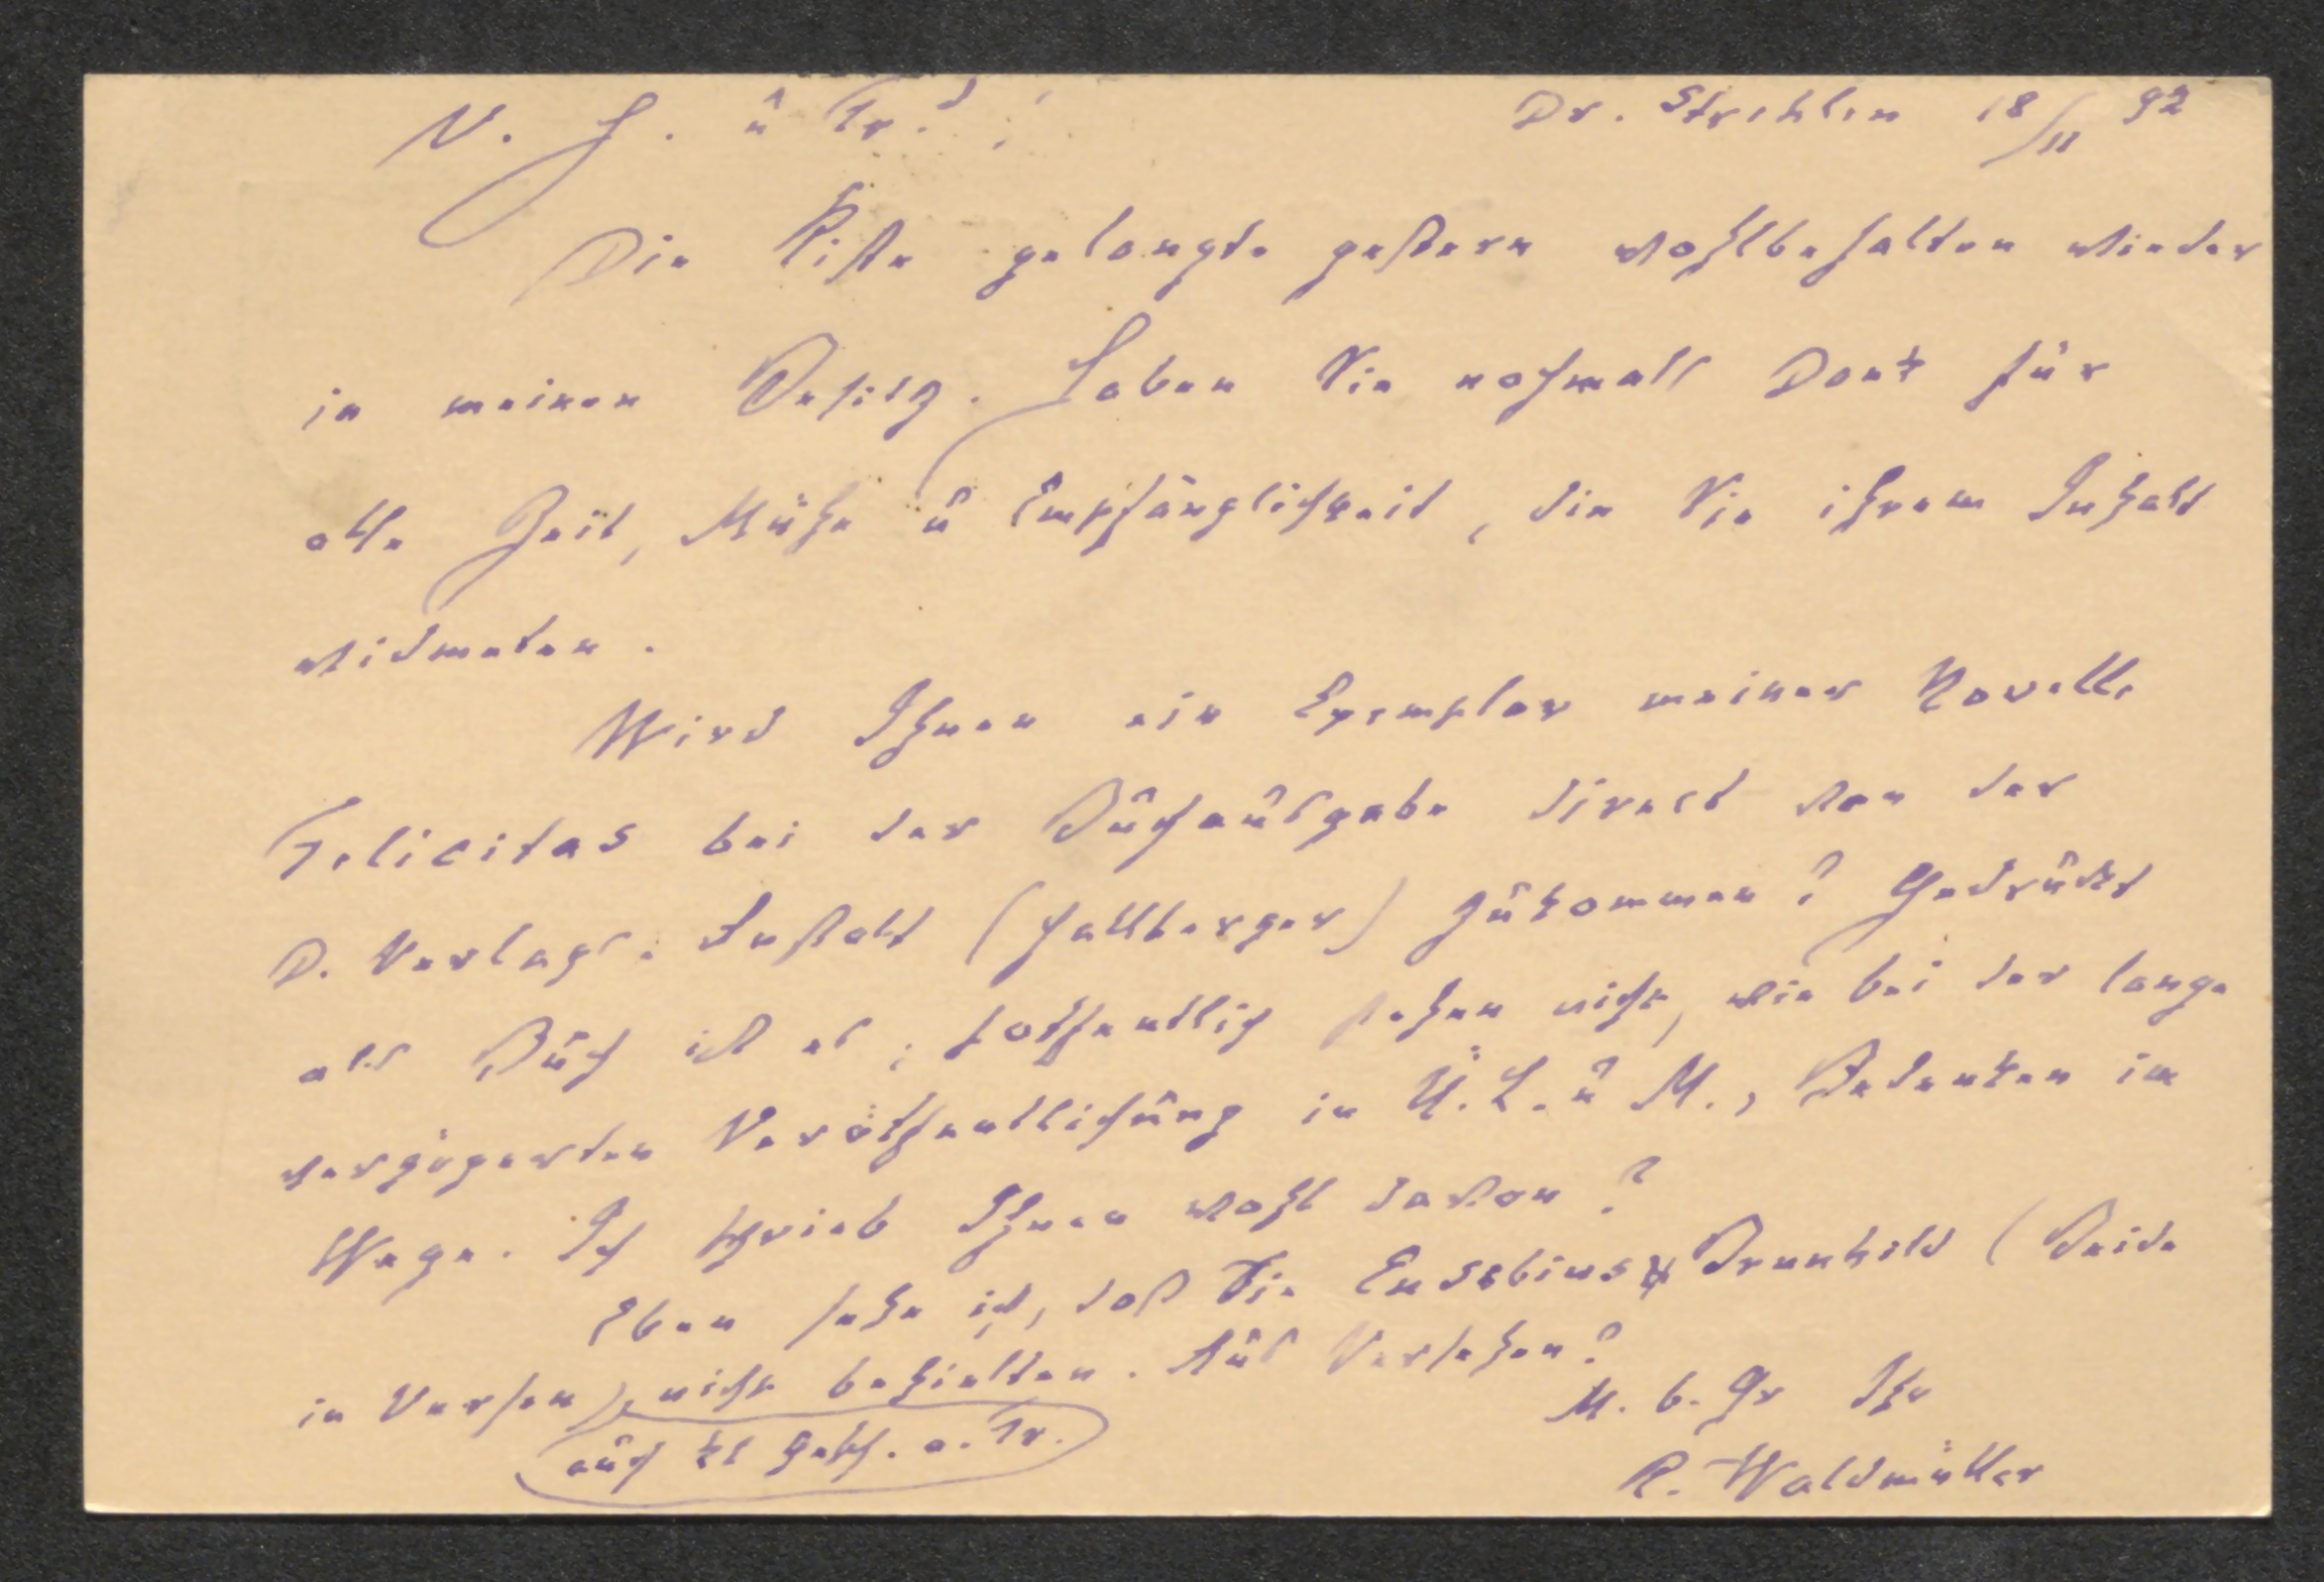 V. H. u Fr.d!
Dr. Strehlen 18/11 92
Die Kiste gelangte gestern wohlbehalten wieder
in meinen Besitz. Haben Sie nochmals Dank für
alle Zeit, Mühe u Empfänglichkeit, die Sie ihrem Inhalt
widmeten.
Wird Ihnen ein Exemplar meiner Novelle
Felicitas bei der Buchausgabe direct von der
D. Verlags-Anstalt (Hallberger) zukommen? Gedruckt
als Buch ist es; hoffentlich stehen nicht, wie bei der lange
verzögerten Veröffentlichung in Ü. L. u M., Bedenken im
Wege. Ich schrieb Ihnen wohl davon?
Eben sehe ich, daß Sie Eusebius & Brunhild (Beide
in Versen) nicht behielten. Aus Versehen?
auch kl Gesch. a. Fr.
M. b. Gr Ihr
R. Waldmüller